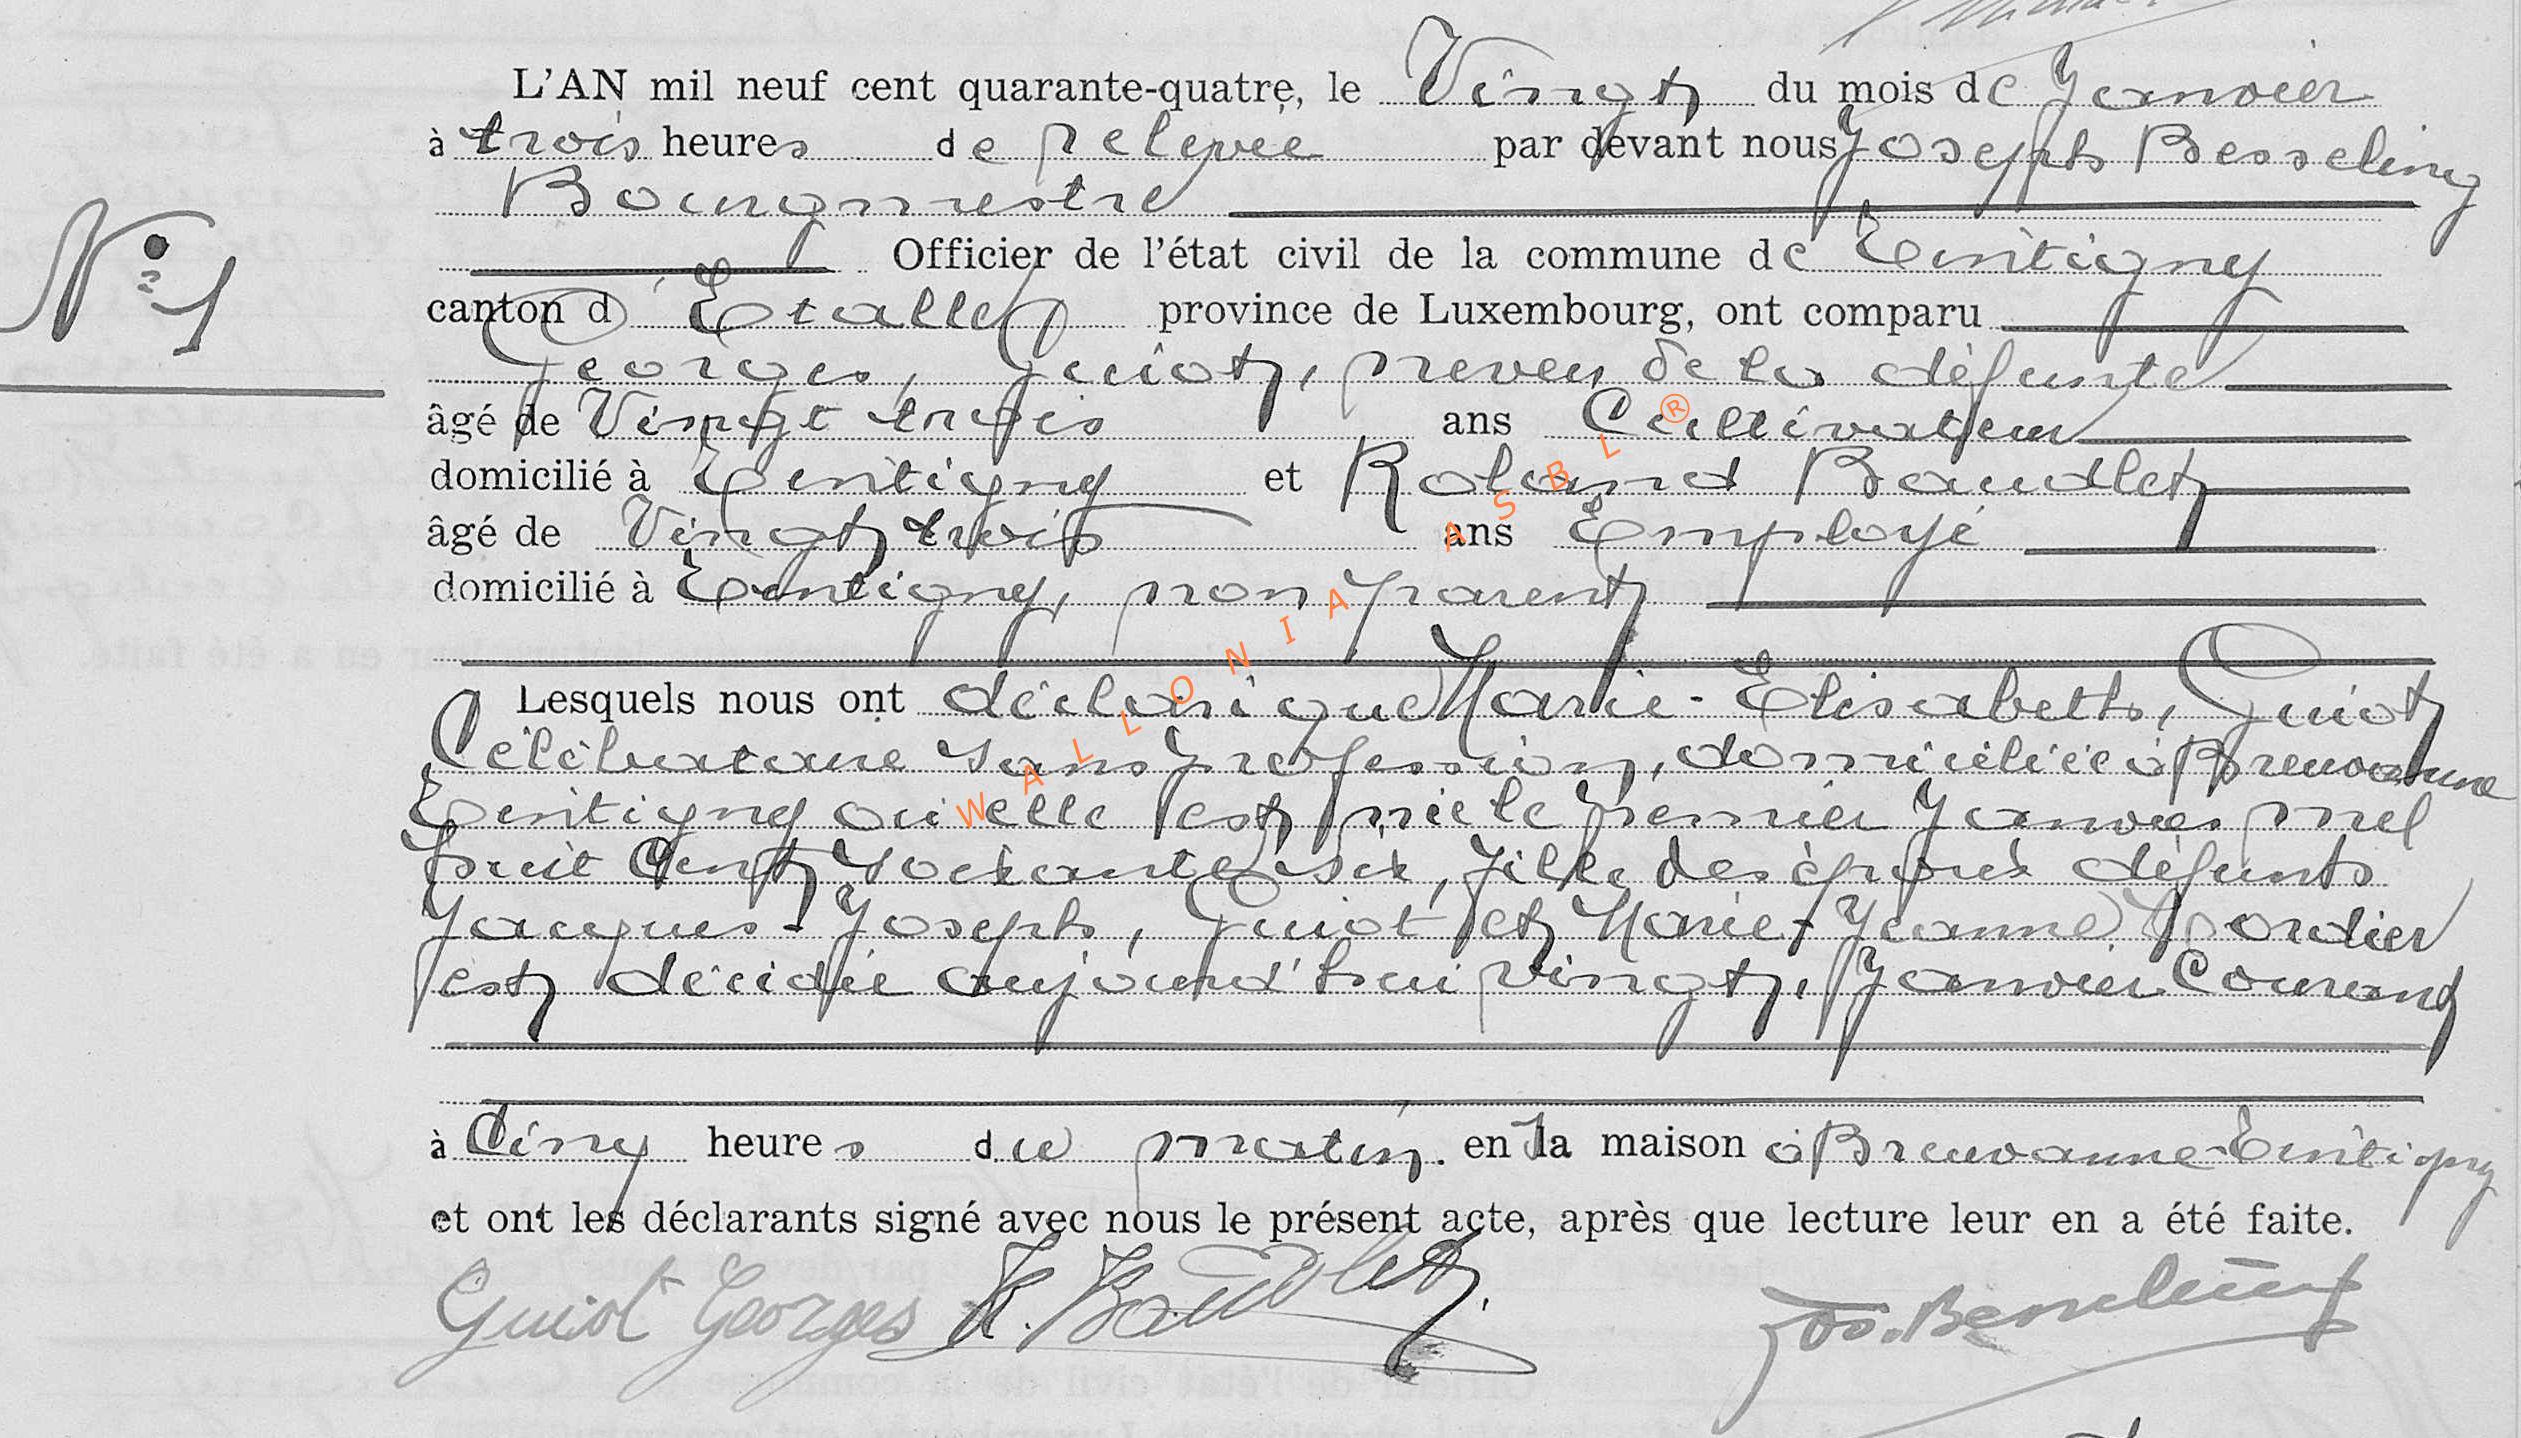 L'AN mil neuf cent quarante-quatre, le Vingt du mois de Janvier
à trois heures de relevée par devant nous Joseph Besseling
Bourgmestre
Officier de l'état civil de la commune de Tintigny
canton d'Etalle province de Luxembourg, ont comparu
N° 1
Georges, Guiot, neveu de la défunte
âgé de Vingt trois ans Cultivateur
domicilié à Tintigny et Roland Baudlet
âgé de Vingt trois ans Employé
domicilié à Tintigny, non parent
Lesquels nous ont déclaré que Marie-Elisabeth, Guiot
Célibataire sans profession, domiciliée à Breuvanne
Tintigny où elle est née le premier Janvier mil
huit Cent soixante six, fille des époux défunts
Jacques-Joseph, Guiot et Marie-Jeanne
est décédée aujourd'hui vingt, Janvier Courant
à Cinq heures du matin. en la maison à Breuvanne-Tintigny
et ont les déclarants signé avec nous le présent acte, après que lecture leur en a été faite.
Guiot Georges R. Baudlet Jos. Besseling
WALLONIA ASBL ®